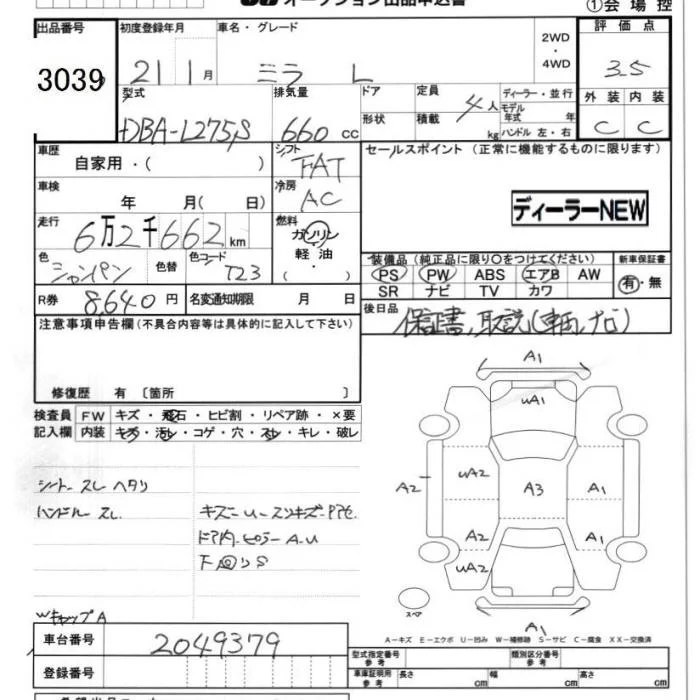 オークション出品申込書
①会場控
出品番号
3039
初度登録年月
21 1月
車名・グレード
ミラ L
2WD
・
4WD
評価点
3.5
外装 内装
C C
型式
DBA-L275S
排気量
660 cc
ドア
形状
定員
4人
積載
kg
ディーラー・並行
モデル
年式 年
ハンドル 左・右
車歴
自家用・( )
シフト
FAT
車検
年 月( 日)
冷房
AC
走行
6万2千662km
燃料
ガソリン
軽油
( ・ )
色
シャンパン
色替
色コード
T23
R券
8,640円
名変通知期限 月 日
セールスポイント(正常に機能するものに限ります)
ディーラーNEW
装備品(純正品に限り○をつけてください)
PS PW ABS エアB AW
SR ナビ TV カワ
新車保証書
有・無
後日品
保証書、取説(車両、ナビ)
注意事項申告欄(不具合内容等は具体的に記入して下さい)
修復歴 有 〔箇所 〕
検査員
記入欄
FW キズ・飛石・ヒビ割・リペア跡・×要
内装 キズ・汚れ・コゲ・穴・スレ・キレ・破レ
シート スレ ヘタリ
ハンドル スレ
キズ一U一スリキズ
ドア内.ピラーA.U
下回りS
WキャップA
A1
uA1
uA2
A2
A3
A1
A2
A1
uA2
A1
スペア
A−キズ E−エクボ U−凹み W−補修跡 S−サビ C−腐食 XX−交換済
車台番号
2049379
登録番号
型式指定番号
参考
類別区分番号
参考
車庫証明用
参考
長さ cm 幅 cm 高さ cm